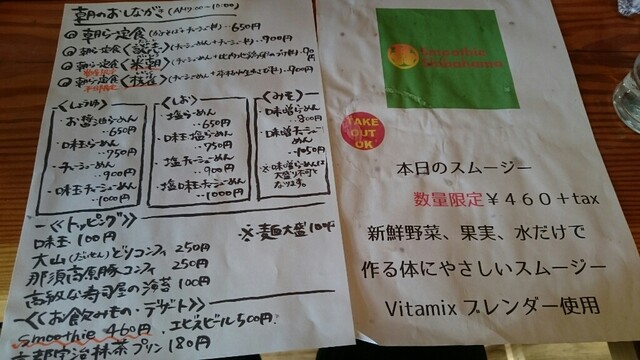 朝のおしながき (AM7:00〜10:00)
朝らー定食 ‥650円
朝らー定食
朝らー定食
朝らー定食 ‥900円
〈しょうゆ〉
お醤油らーめん
‥650円
味玉らーめん
‥750円
チャーシューめん
‥900円
味玉チャーシューめん
‥1000円
〈しお〉
塩らーめん
‥650円
味玉塩らーめん
750円
塩チャーシューめん
‥900円
塩味玉チャーシューめん
‥1000円
〈みそ〉
・味噌らーめん
800円
・味噌チャーシューめん
‥1050円
※味噌らーめんは
大盛り不可と
なります。
〈トッピング〉
※麺大盛100円
味玉 100円
大山(だいせん)どりコンフィ 250円
那須高原豚コンフィ 250円
高級な寿司屋の海苔 100円
〈お飲みもの・デザート〉
smoothie 460円、エビスビール500円
京都宇治抹茶プリン 180円
Smoothie
TAKE
OUT
OK
本日のスムージー
数量限定¥460+tax
新鮮野菜、果実、水だけで
作る体にやさしいスムージー
Vitamix ブレンダー使用